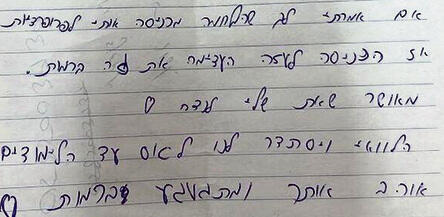 אם אמרתי לך שהלחימה מכניסה אותי לפרופורציות
אז הכניסה לעזה העצימה את זה ברמות.
מאושר שאת שלי לעד
הלוואי ויסתדר לנו לאוס עד הלימודים
אוהב אותך ומתגעגע ברמות